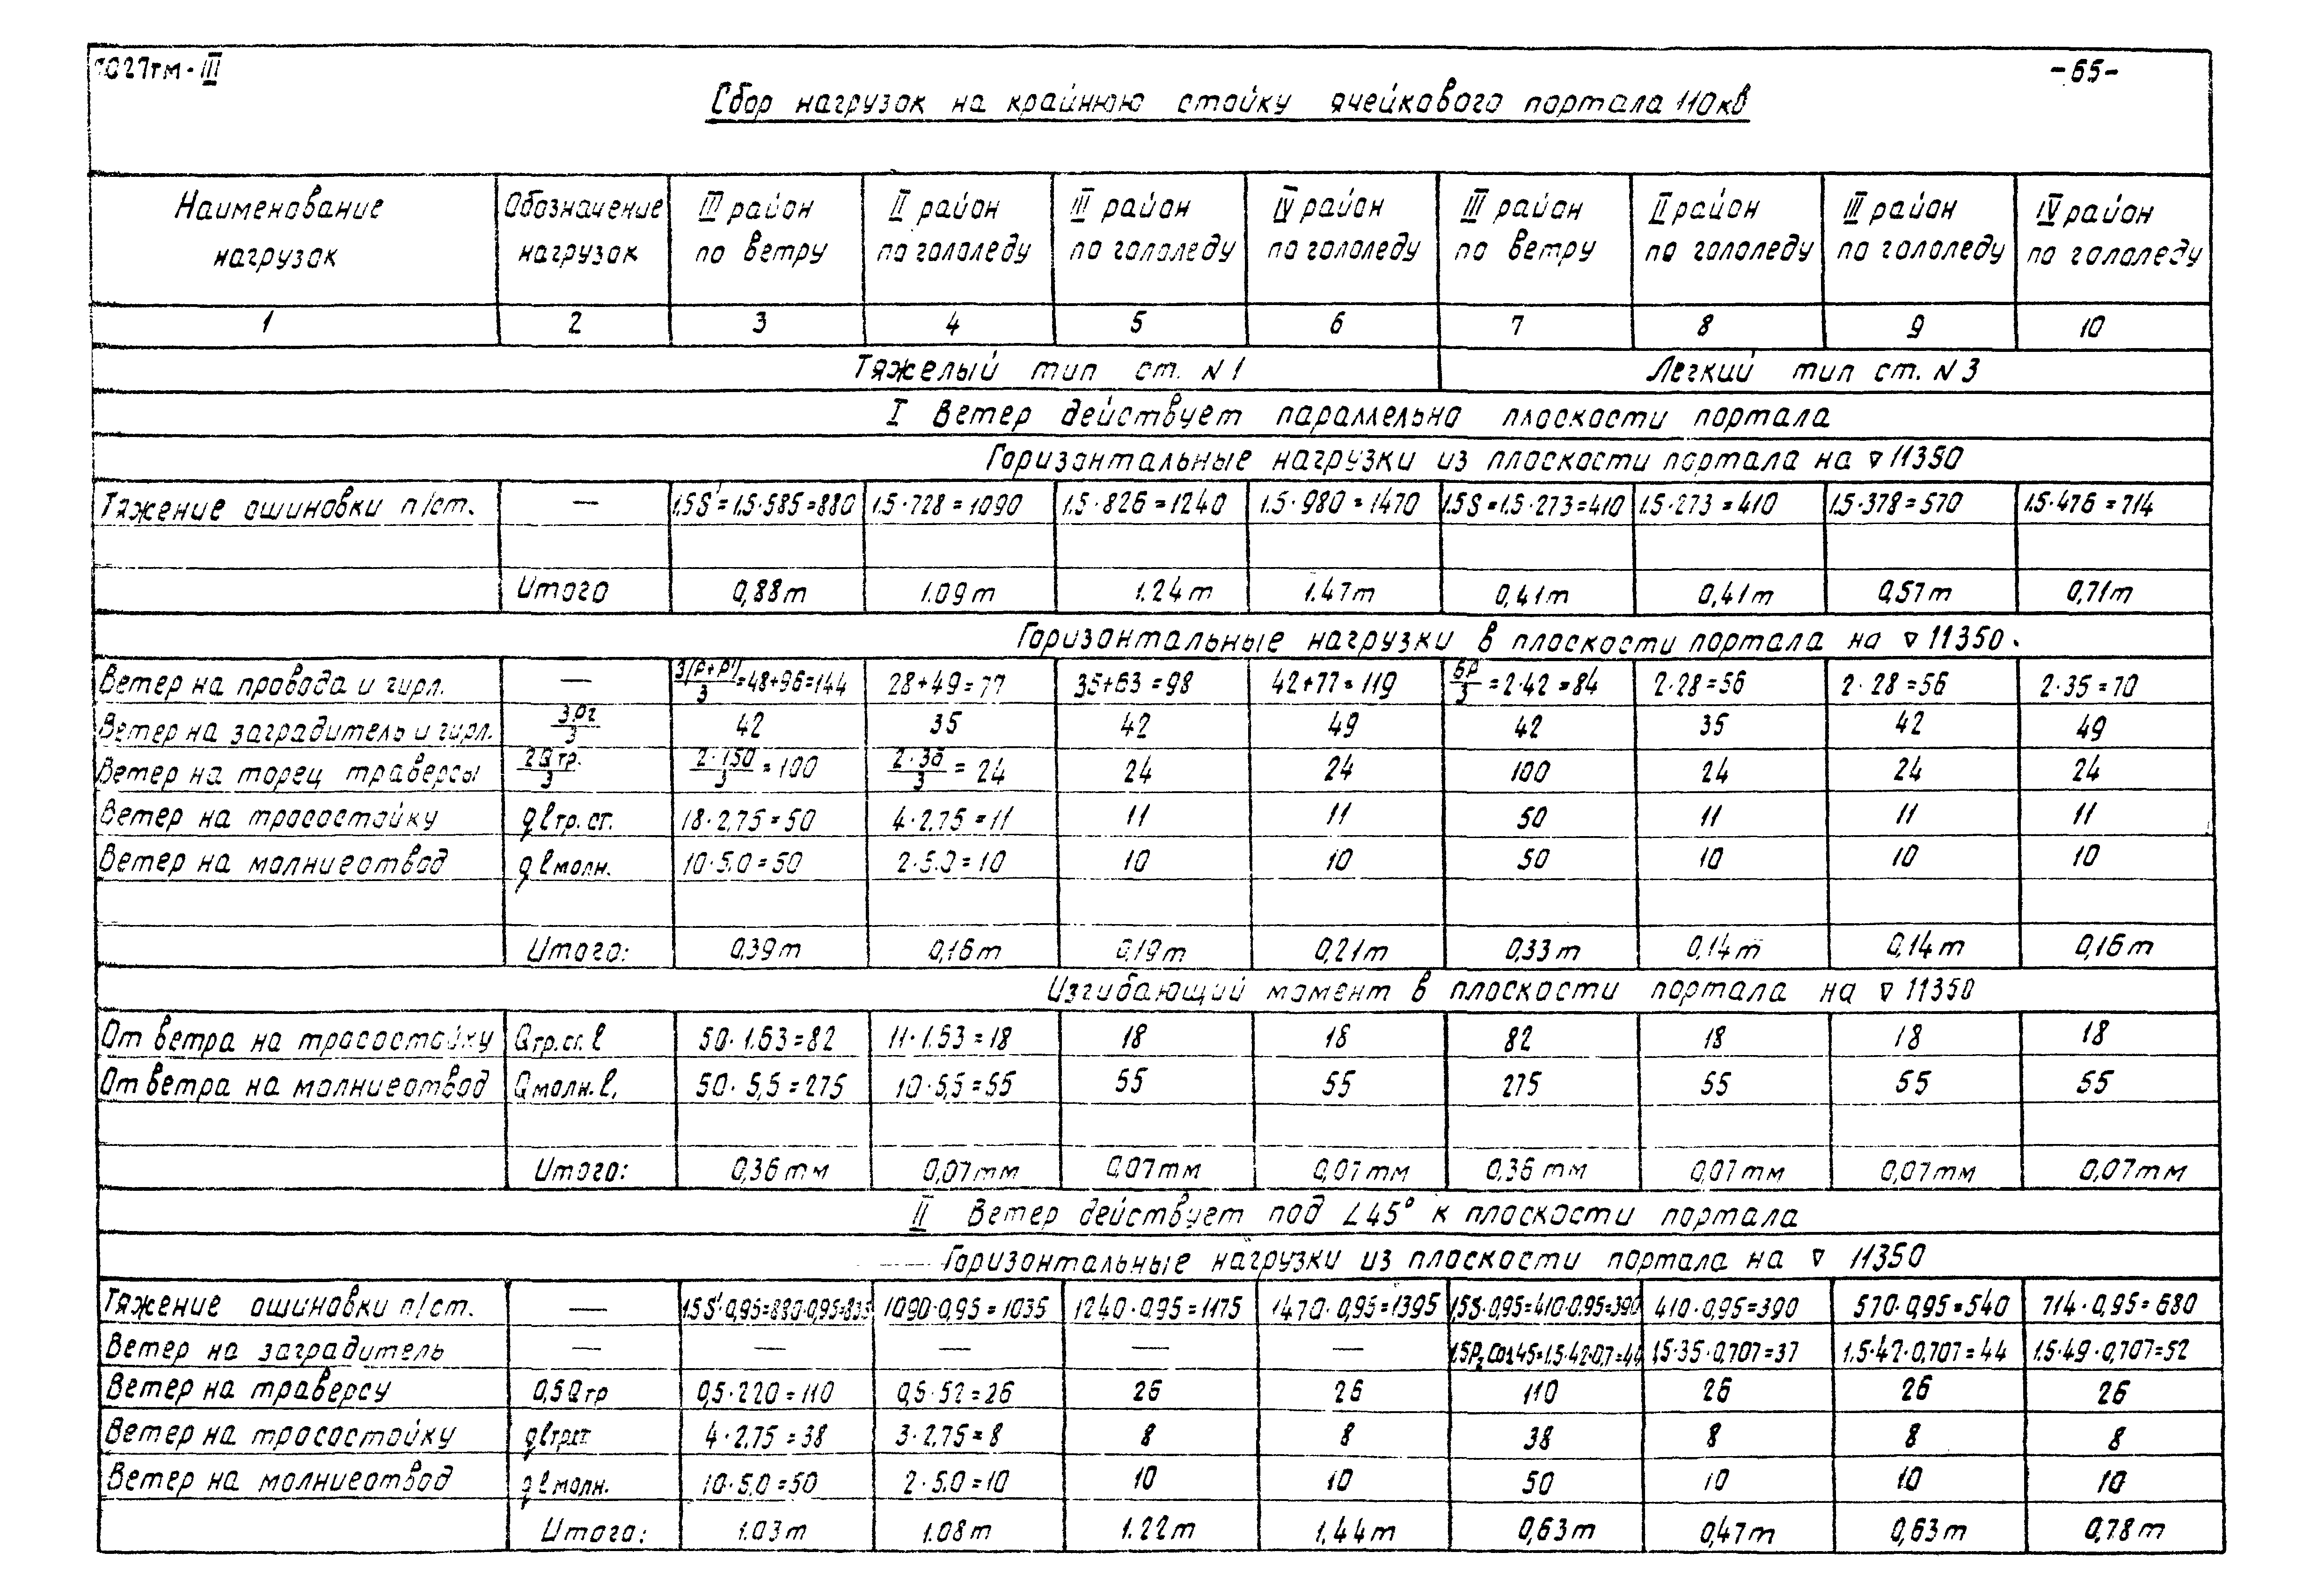 7027тм-III
-65-
Сбор нагрузок на крайнюю стойку ячейкового портала 110кв
Наименование нагрузок | Обозначение нагрузок | III район по ветру | II район по гололеду | III район по гололеду | IV район по гололеду | III район по ветру | II район по гололеду | III район по гололеду | IV район по гололеду
1 | 2 | 3 | 4 | 5 | 6 | 7 | 8 | 9 | 10
Тяжелый тип ст. N1 | Легкий тип ст. N3
I Ветер действует параллельно плоскости портала
Горизонтальные нагрузки из плоскости портала на ▽11350
Тяжение ошиновки п/ст. | — | 1.5S'=1.5·585=880 | 1.5·728=1090 | 1.5·826=1240 | 1.5·980=1470 | 1.5S=1.5·273=410 | 1.5·273=410 | 1.5·378=570 | 1.5·476=714
Итого | 0,88т | 1.09т | 1.24т | 1.47т | 0,41т | 0,41т | 0,57т | 0,71т
Горизонтальные нагрузки в плоскости портала на ▽11350.
Ветер на провода и гирл. | — | 3(P+P')/3=48+96=144 | 28+49=77 | 35+63=98 | 42+77=119 | 6P/3=2·42=84 | 2·28=56 | 2·28=56 | 2·35=70
Ветер на заградитель и гирл. | 3Pг/3 | 42 | 35 | 42 | 49 | 42 | 35 | 42 | 49
Ветер на торец траверсы | 2Qтр./3 | 2·150/3=100 | 2·36/3=24 | 24 | 24 | 100 | 24 | 24 | 24
Ветер на тросостойку | qlтр.ст. | 18·2,75=50 | 4·2,75=11 | 11 | 11 | 50 | 11 | 11 | 11
Ветер на молниеотвод | qlмолн. | 10·5.0=50 | 2·5.0=10 | 10 | 10 | 50 | 10 | 10 | 10
Итого: | 0,39т | 0,16т | 0,19т | 0,21т | 0,33т | 0,14т | 0,14т | 0,16т
Изгибающий момент в плоскости портала на ▽11350
От ветра на тросостойку | Qтр.ст.l | 50·1.63=82 | 11·1.63=18 | 18 | 18 | 82 | 18 | 18 | 18
От ветра на молниеотвод | Qмолн.l, | 50·5,5=275 | 10·5,5=55 | 55 | 55 | 275 | 55 | 55 | 55
Итого: | 0,36тм | 0,07тм | 0,07тм | 0,07тм | 0,36тм | 0,07тм | 0,07тм | 0,07тм
II Ветер действует под ∠45° к плоскости портала
Горизонтальные нагрузки из плоскости портала на ▽ 11350
Тяжение ошиновки п/ст. | — | 1.5S'·0,95=880·0,95=835 | 1090·0,95=1035 | 1240·0,95=1175 | 1470·0,95=1395 | 1,5S·0,95=410·0.95=390 | 410·0,95=390 | 570·0,95=540 | 714·0,95=680
Ветер на заградитель | — | — | — | — | — | 1.5PгCos45=1.5·42·0,7=44 | 1,5·35·0,707=37 | 1.5·42·0,707=44 | 1.5·49·0,707=52
Ветер на траверсу | 0,5Qтр | 0,5·220=110 | 0,5·52=26 | 26 | 26 | 110 | 26 | 26 | 26
Ветер на тросостойку | qlтр.ст | 4·2.75=38 | 3·2.75=8 | 8 | 8 | 38 | 8 | 8 | 8
Ветер на молниеотвод | qlмолн. | 10·5.0=50 | 2·5.0=10 | 10 | 10 | 50 | 10 | 10 | 10
Итого: | 1.03т | 1.08т | 1.22т | 1.44т | 0,63т | 0,47т | 0,63т | 0,78т